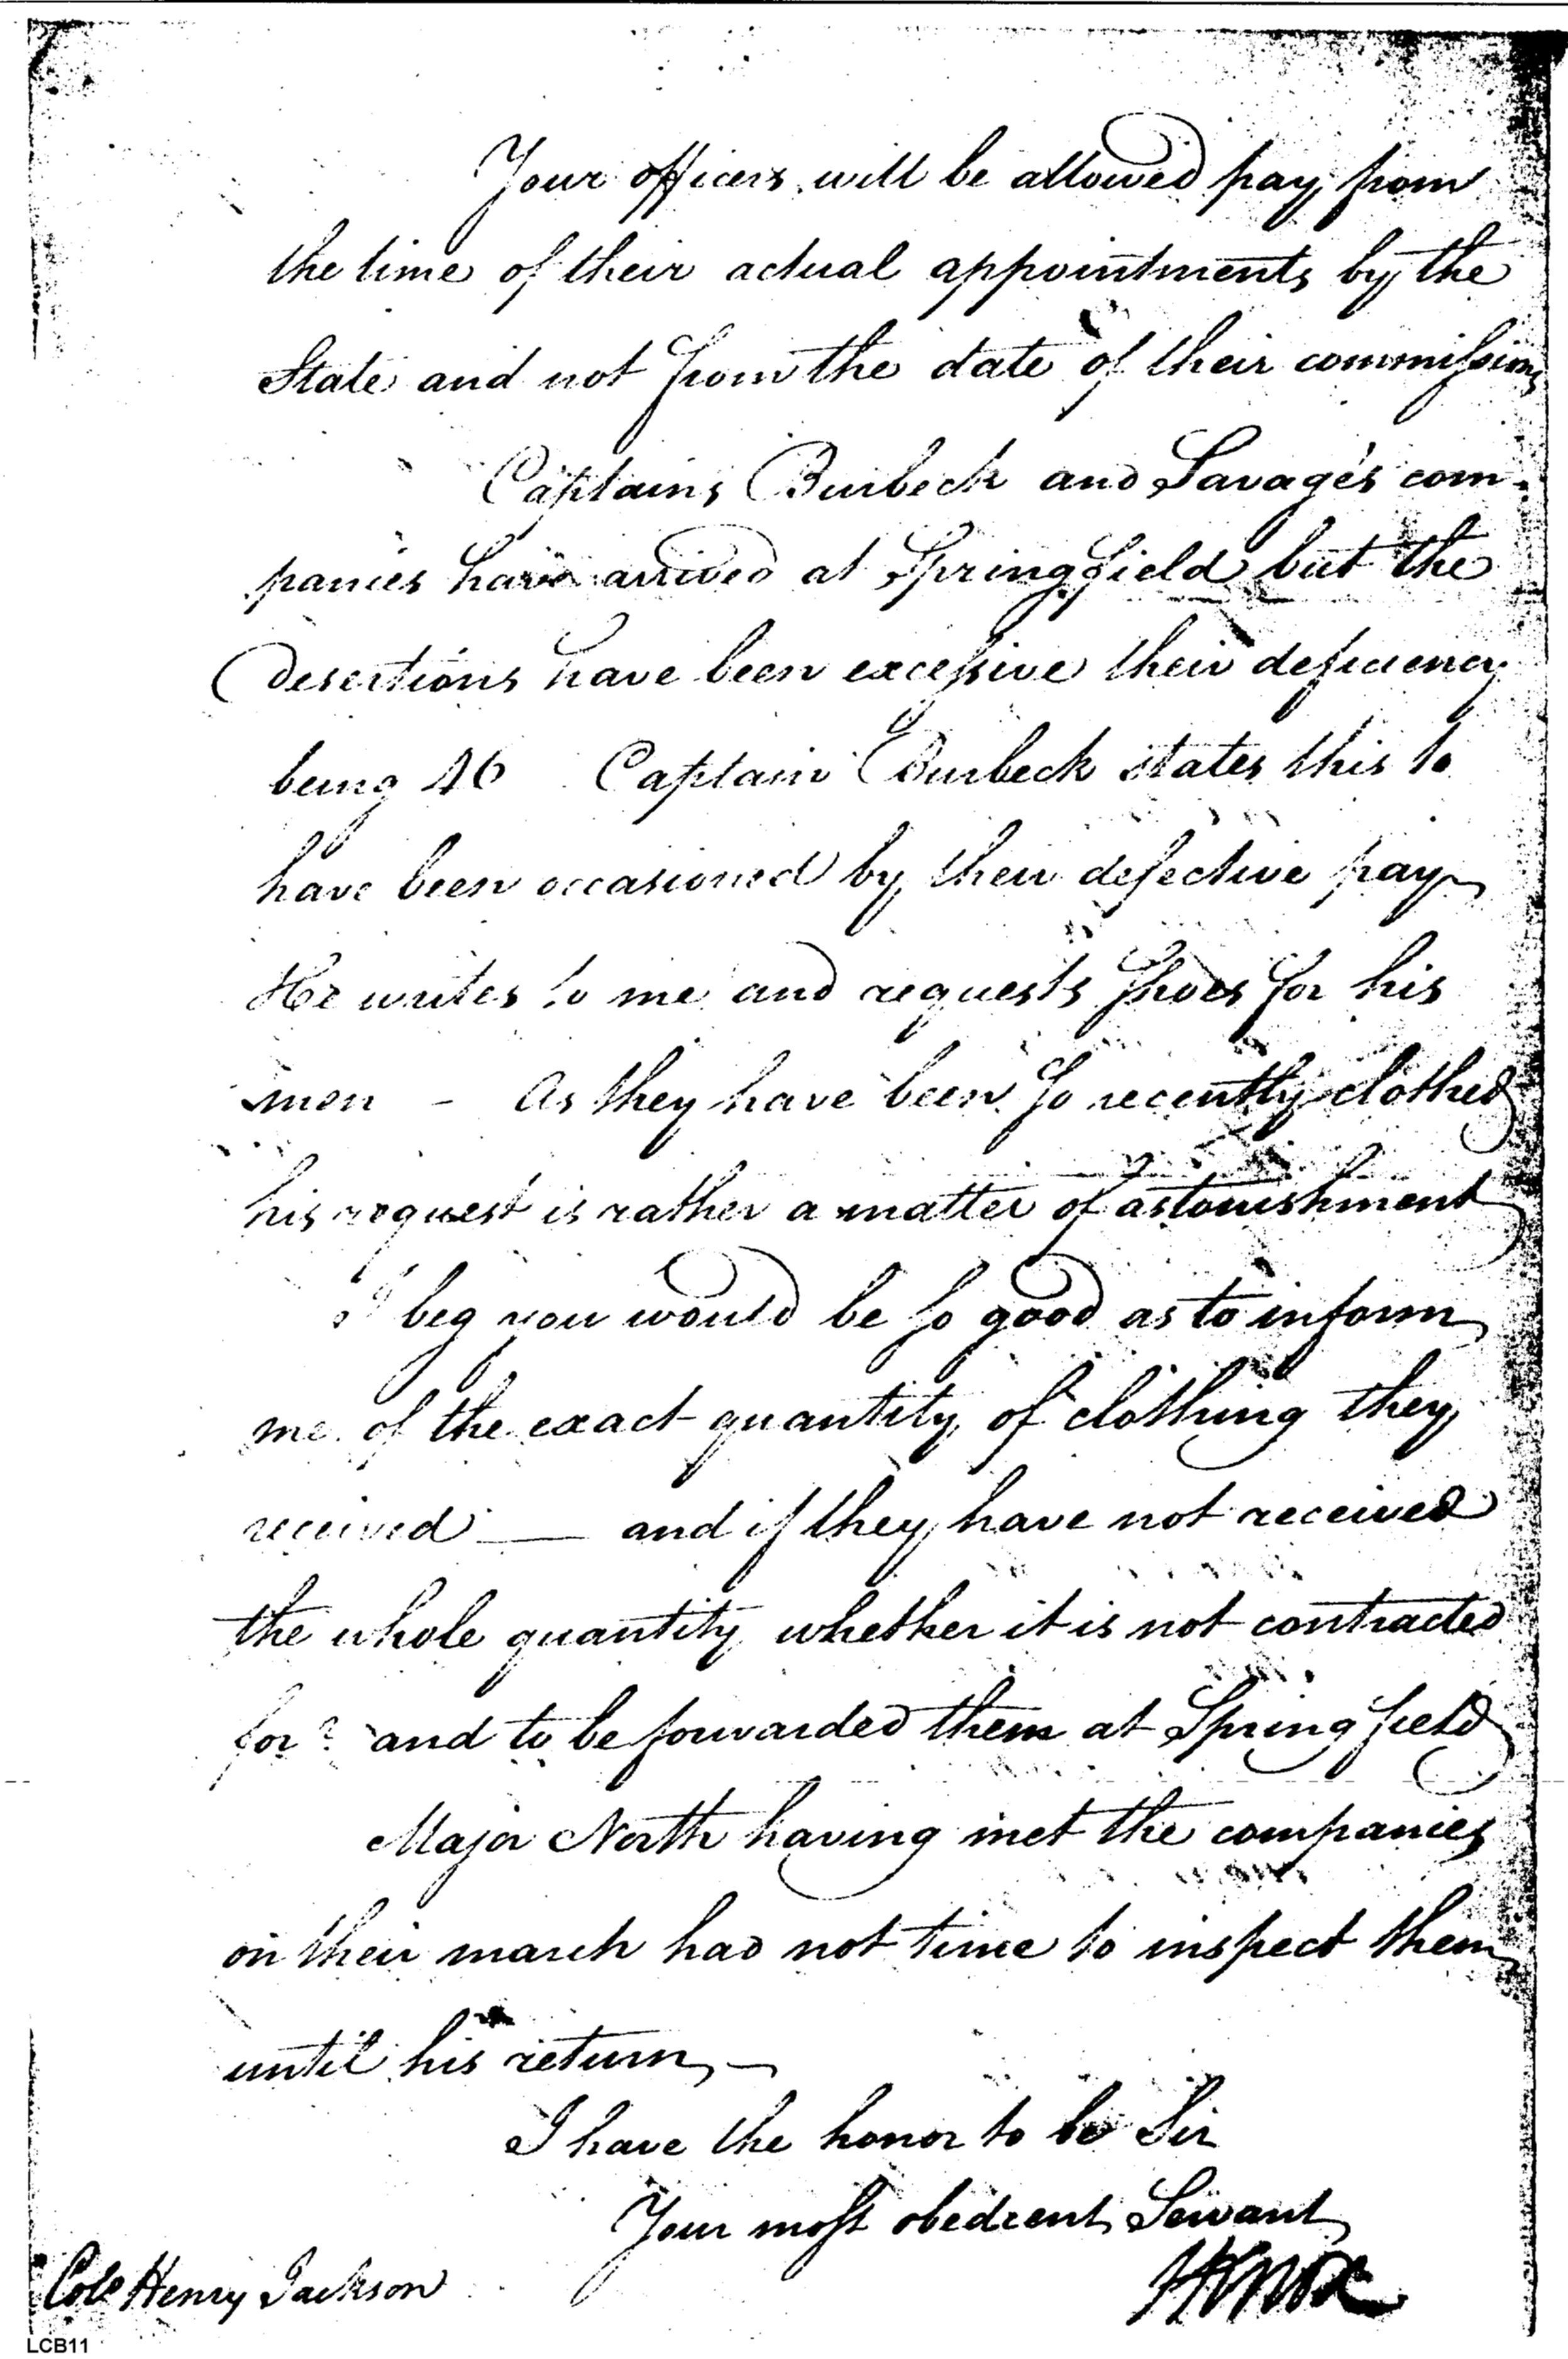 Your officers will be allowed pay from
the time of their actual appointments by the
State and not from the date of their commissions
Captains Burbeck and Savage's com-
panies have arrived at Springfield but the
Desertions have been excessive their deficiency
being 46 Captain Burbeck states this to
have been occasioned by their defective pay
He writes to me and requests shoes for his
men - As they have been so recently clothed
his request is rather a matter of astonishment
I beg you would be so good as to inform
me of the exact quantity of clothing they
received — and if they have not received
the whole quantity whether it is not contracted
for? and to be forwarded them at Springfield
Major North having met the companies
on their march had not time to inspect them
until his return, —
I have the honor to be Sir
Your most obedient Servant
HKnox
Colo Henry Jackson
LCB11